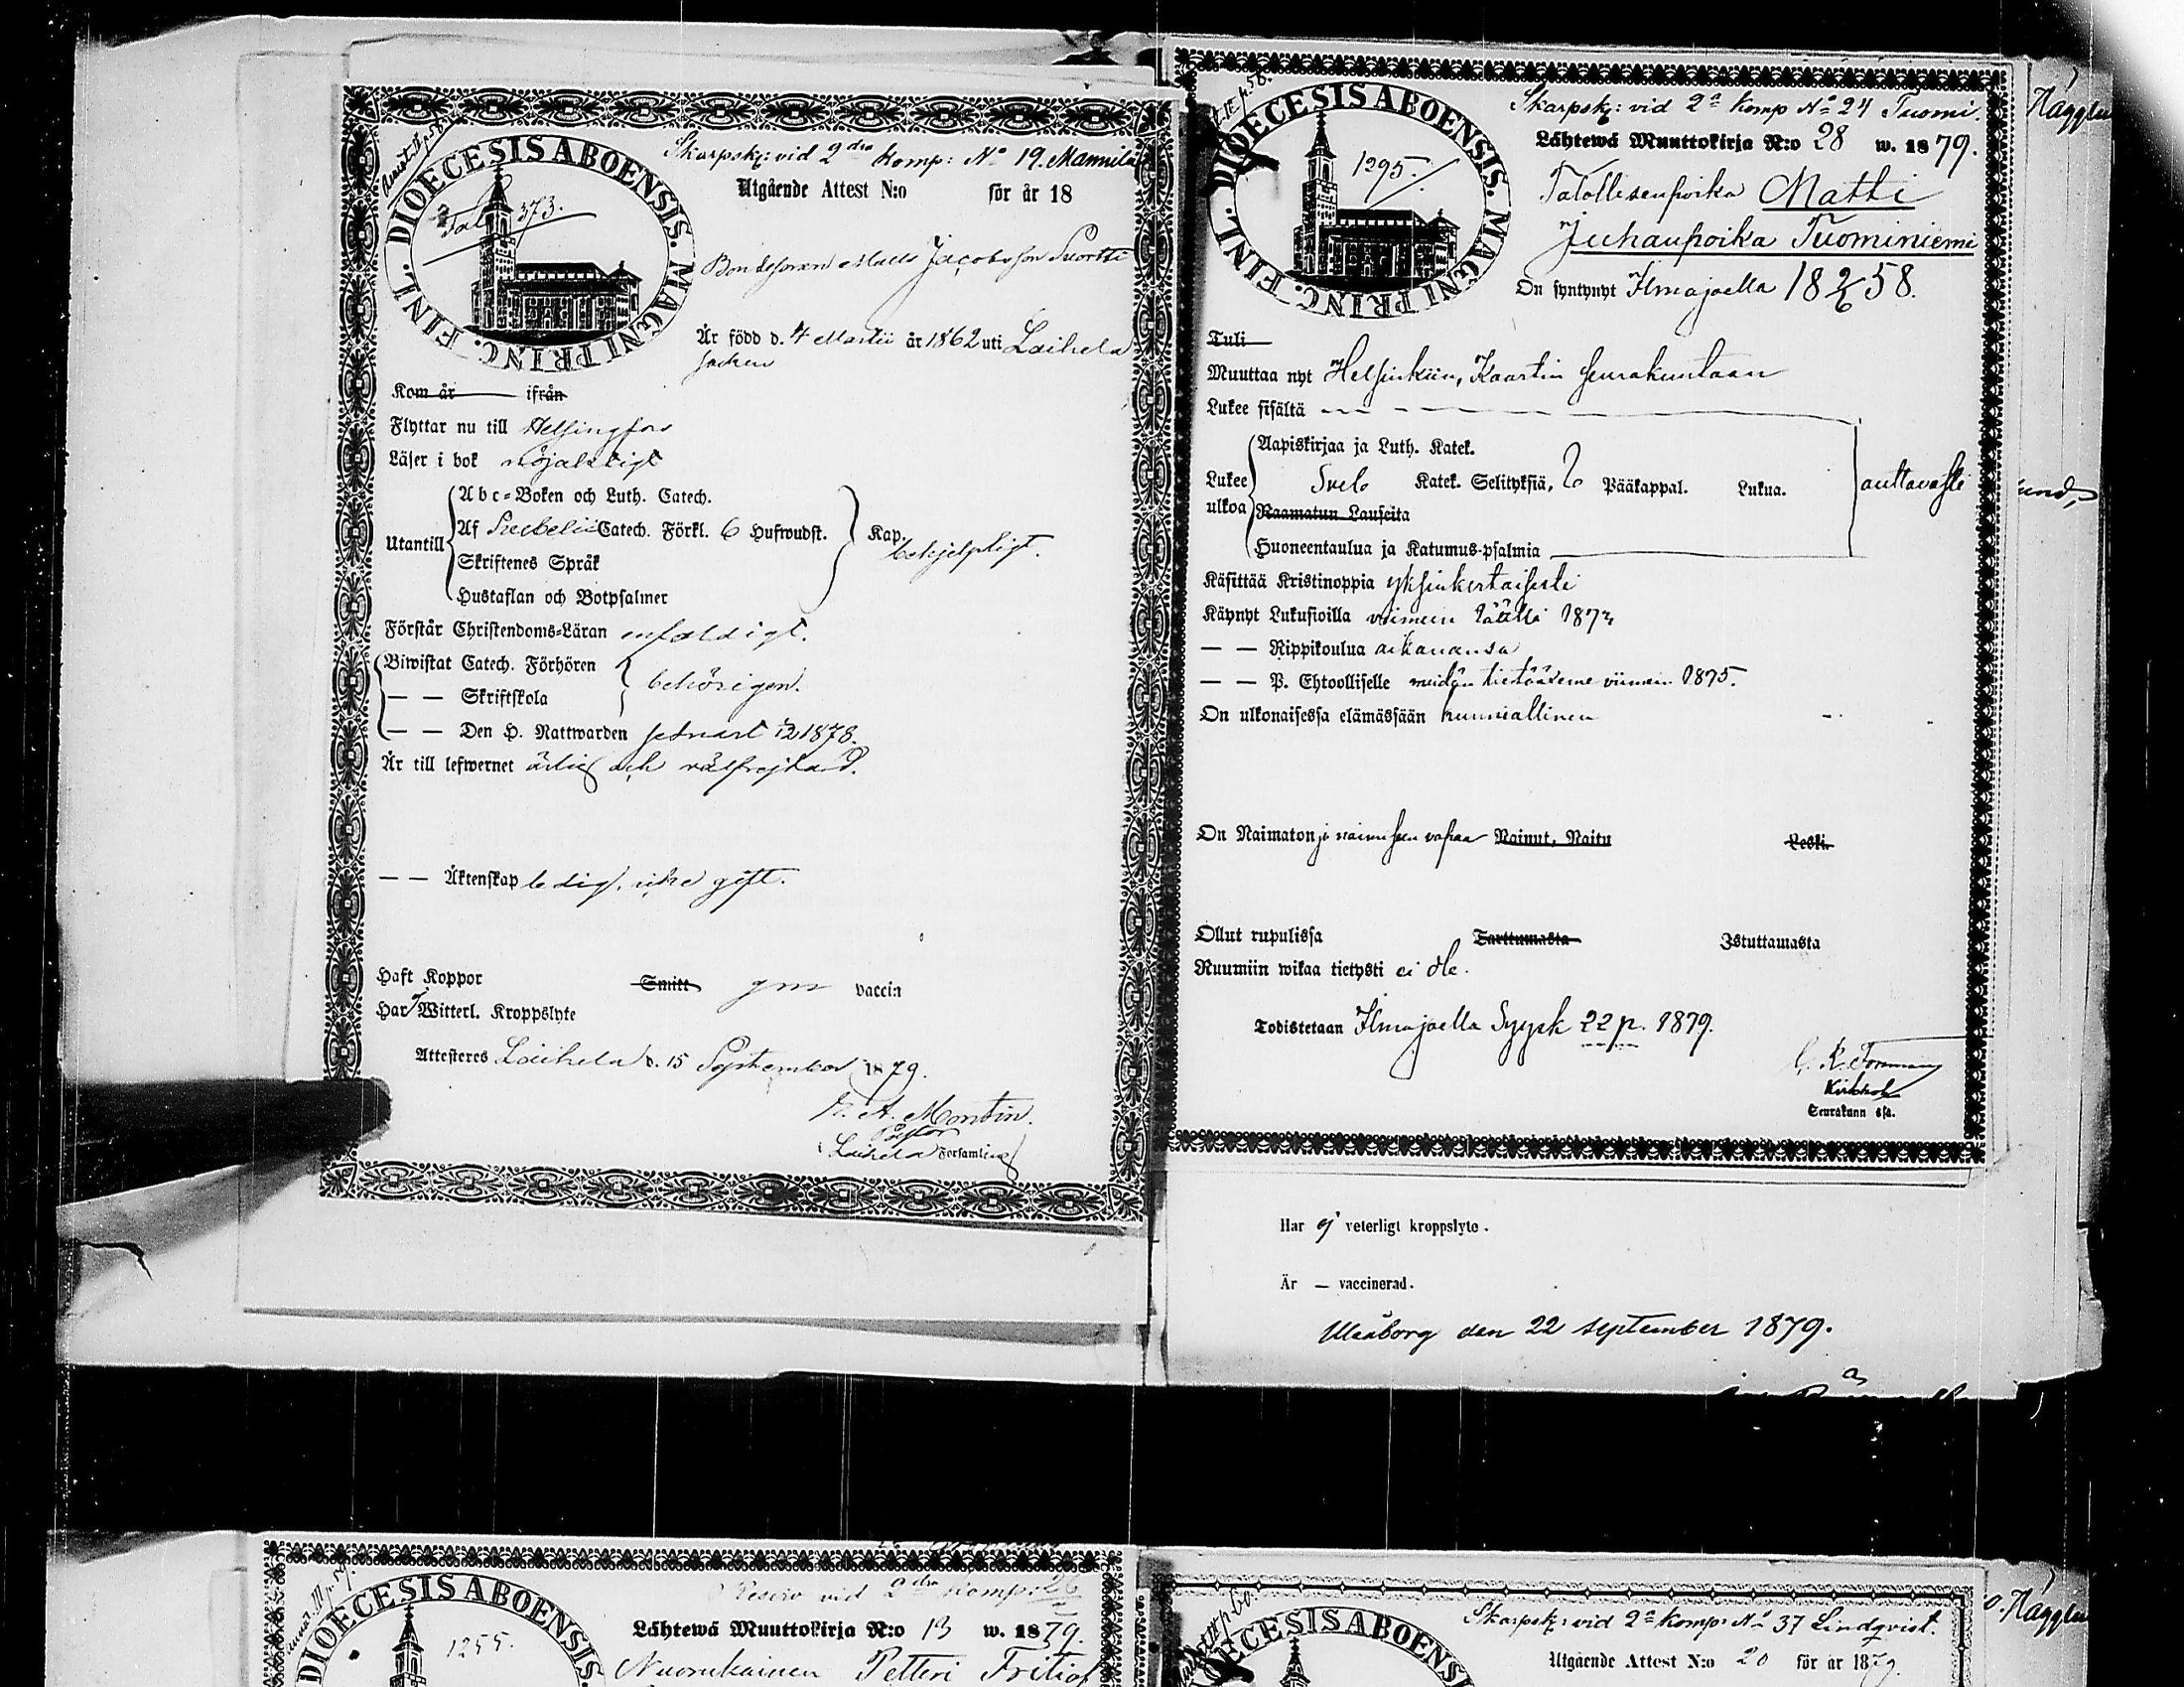 DIOECESIS ABOENSIS. MAGNI PRINC. FINL.
373.
Skarpsk: vid 2dra Komp: No 19. Mannila
Utgående Attest N:o för år 18
Bondesonen Matts Jacobsson
Är född d. 4 Martii år 1862 uti Laihela
socken
Kom år ifrån
Flyttar nu till Helsingfors
Läser i bok nöjaktigt
Utantill
Abc-Boken och Luth. Catech.
Af Svebelii Catech. Förkl. 6 Hufwudst.
Skriftenes Språk
Hustaflan och Botpsalmer
Kap.
behjelpligt.
Förstår Christendoms-Läran enfaldigt.
Biwistat Catech. Förhören
— — Skriftskola
behörigen.
— — Den H. Nattwarden senast 1878.
Är till lefwernet ärlig och välfrejdad.
— — Äktenskap ledig, icke gift.
Haft Koppor Smitt gm vaccin
Har ej Witterl. Kroppslyte
Attesteres Laihela d. 15 September 1879.
A. Montin.
Pastor
Laihela Församling
DIOECESIS ABOENSIS. MAGNI PRINC. FINL.
1295.
Skarpsk: vid 2a Komp No 24 Tuomi.
Lähtewä Muuttokirja N:o 28 w. 1879.
Talollisenpoika Matti
Juhanpoika Tuominiemi
On syntynyt Ilmajoella 18 2/6 58.
Tuli
Muuttaa nyt Helsinkiin, Kaartin seurakuntaan
Lukee sisältä
Lukee ulkoa
Aapiskirjaa ja Luth. Katek.
Sveb Katek. Selityksiä, 6 Pääkappal. Lukua.
Raamatun Lauseita
Huoneentaulua ja Katumus-psalmia
auttavasti
Käsittää Kristinoppia yksinkertaisesti
Käynyt Lukusioilla viimein täällä 187
— — Rippikoulua aikanansa
— — P. Ehtoolliselle meidän tietääksemme viimein 1875.
On ulkonaisessa elämässään kunniallinen
On Naimaton ja naimiseen vapaa Nainut, Naitu Leski.
Ollut rupulissa Tarttumasta Istuttamasta
Ruumiin wikaa tietysti ei ole.
Todistetaan Ilmajoella Syysk 22 p. 1879.
Kirkkoh
Seurakunn ssa.
Har ej veterligt kroppslyte.
Är — vaccinerad.
Uleåborg den 22 september 1879.
DIOECESIS ABOENSIS
1255.
Reserv vid 2dra Komp: 26
Lähtewä Muuttokirja N:o 13 w. 1879.
Nuorukainen Petteri Fritiof
DIOECESIS ABOENSI
Skarpsk: vid 2a Komp: No 37 Lindqvist.
Utgående Attest N:o 20 för år 1879.